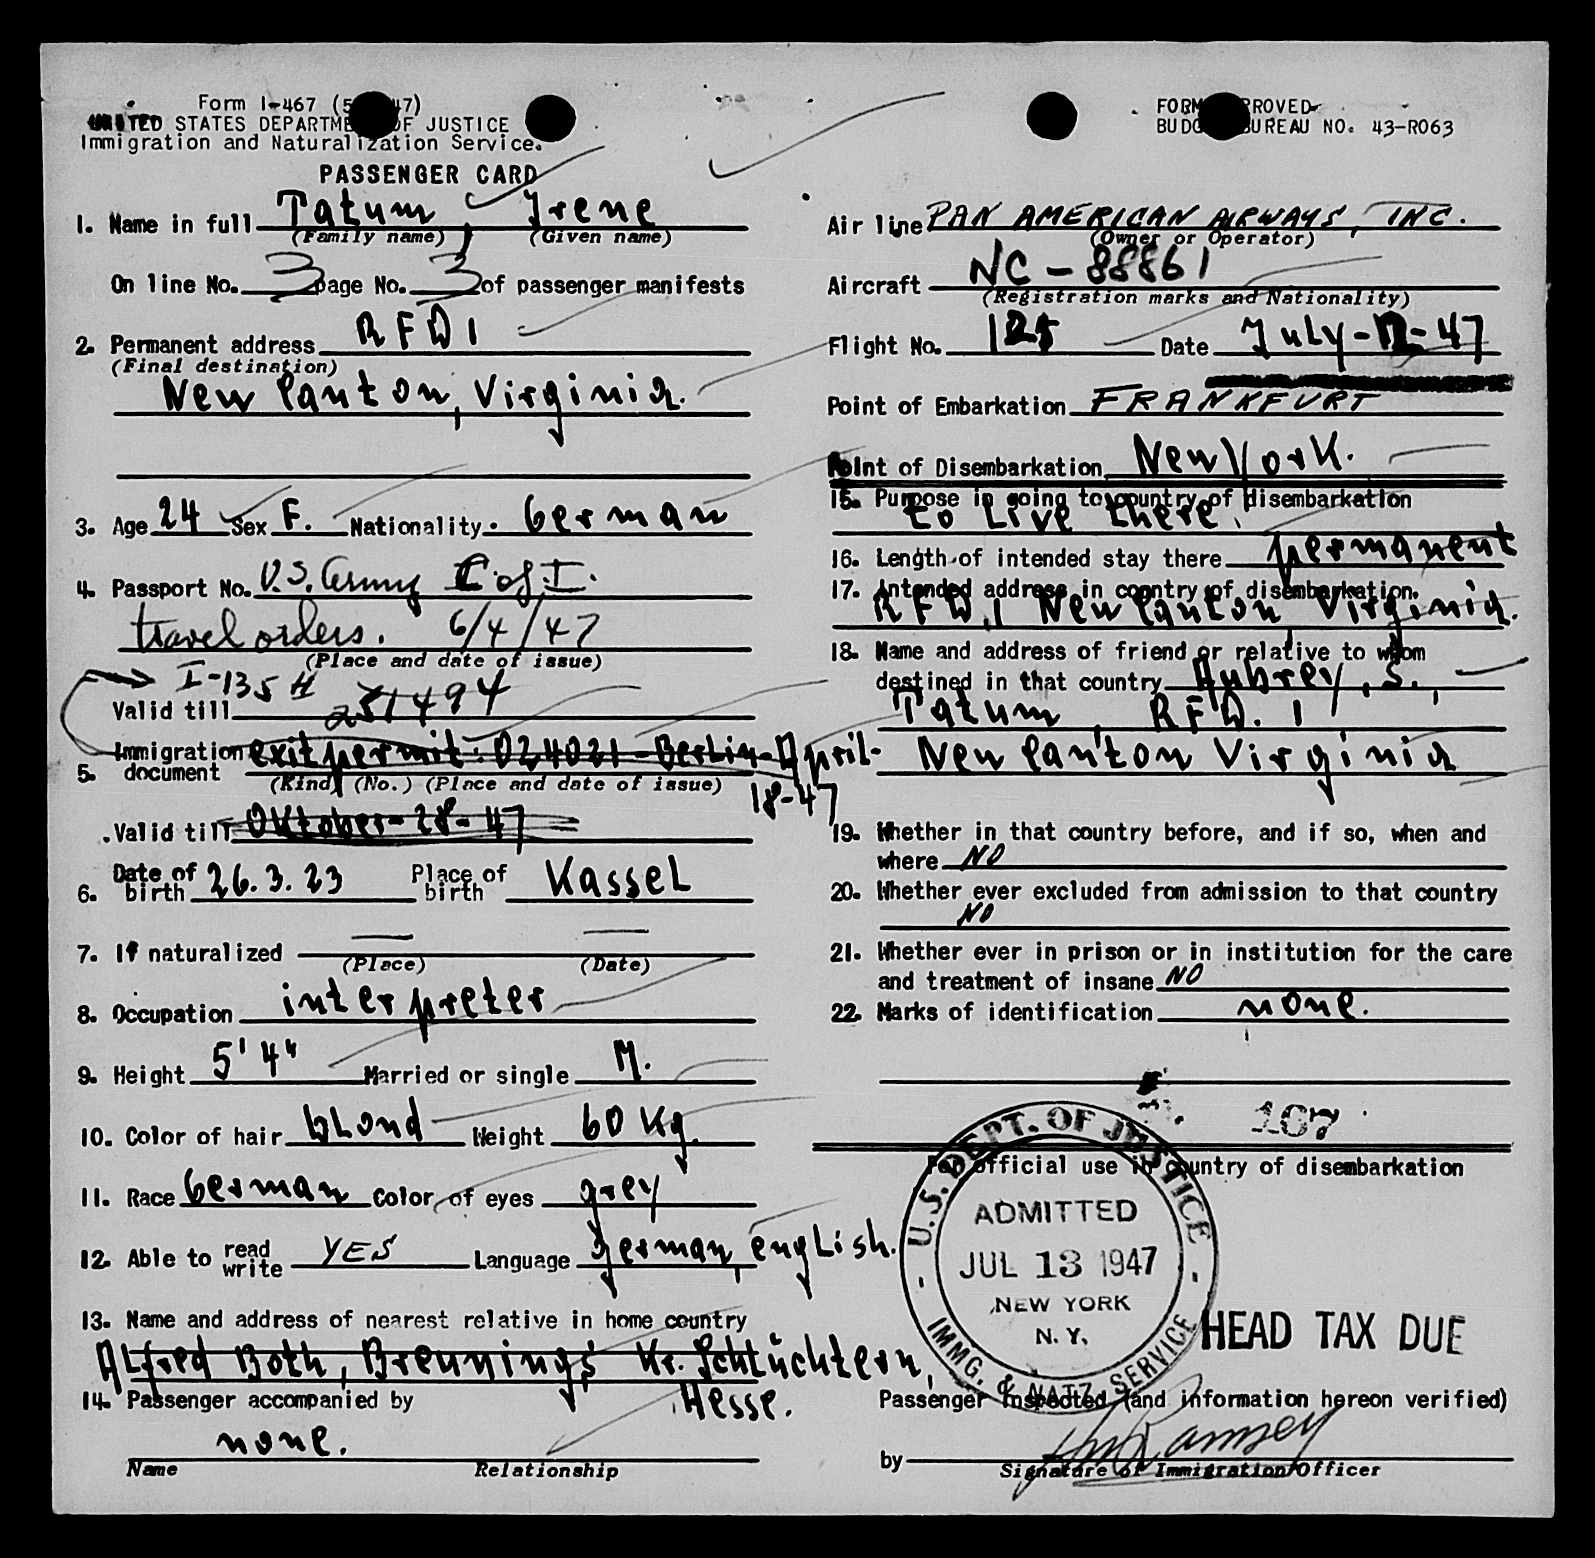 Form I-467 (5 47)
UNITED STATES DEPARTMENT OF JUSTICE
Immigration and Naturalization Service.
PASSENGER CARD
1. Name in full Tatum, Irene
(Family name) (Given name)
On line No. 3 page No. 3 of passenger manifests
2. Permanent address RFD 1
(Final destination)
New Canton, Virginia.
3. Age 24 Sex F. Nationality. German
4. Passport No. U.S. Army C of I.
travel orders. 6/4/47
(Place and date of issue)
I-135 H
Valid till
Immigration
5. document exit permit: 024021-Berlin-April-
(Kind) (No.) (Place and date of issue)
18-47
Valid till Oktober-28-47
6. Date of birth 26.3.23 Place of birth Kassel
7. If naturalized — —
(Place) (Date)
8. Occupation interpreter
9. Height 5' 4" Married or single M.
10. Color of hair blond Weight 60 Kg.
11. Race German Color of eyes grey
12. Able to read write YES Language german, english.
13. Name and address of nearest relative in home country
Alfred Both, Breunings Kr. Schlüchtern,
Hesse.
14. Passenger accompanied by
none.
Name Relationship
FORM APPROVED
BUDGET BUREAU NO. 43-R063
Air line PAN AMERICAN AIRWAYS, INC.
(Owner or Operator)
Aircraft NC-88861
(Registration marks and Nationality)
Flight No. 125 Date July-12-47
Point of Embarkation FRANKFURT
Point of Disembarkation New York.
15. Purpose in going to country of disembarkation
to live there.
16. Length of intended stay there permanent
17. Intended address in country of disembarkation.
RFD.1 New Canton Virginia.
18. Name and address of friend or relative to whom
destined in that country Aubrey, S.,
Tatum, RFD. 1
New Canton Virginia
19. Whether in that country before, and if so, when and
where NO
20. Whether ever excluded from admission to that country
NO
21. Whether ever in prison or in institution for the care
and treatment of insane NO
22. Marks of identification none.
167
For official use in country of disembarkation
U.S. DEPT. OF JUSTICE
ADMITTED
JUL 13 1947
NEW YORK
N.Y.
IMMG. & NATZ. SERVICE
HEAD TAX DUE
Passenger inspected (and information hereon verified)
by Ramsey
Signature of Immigration Officer